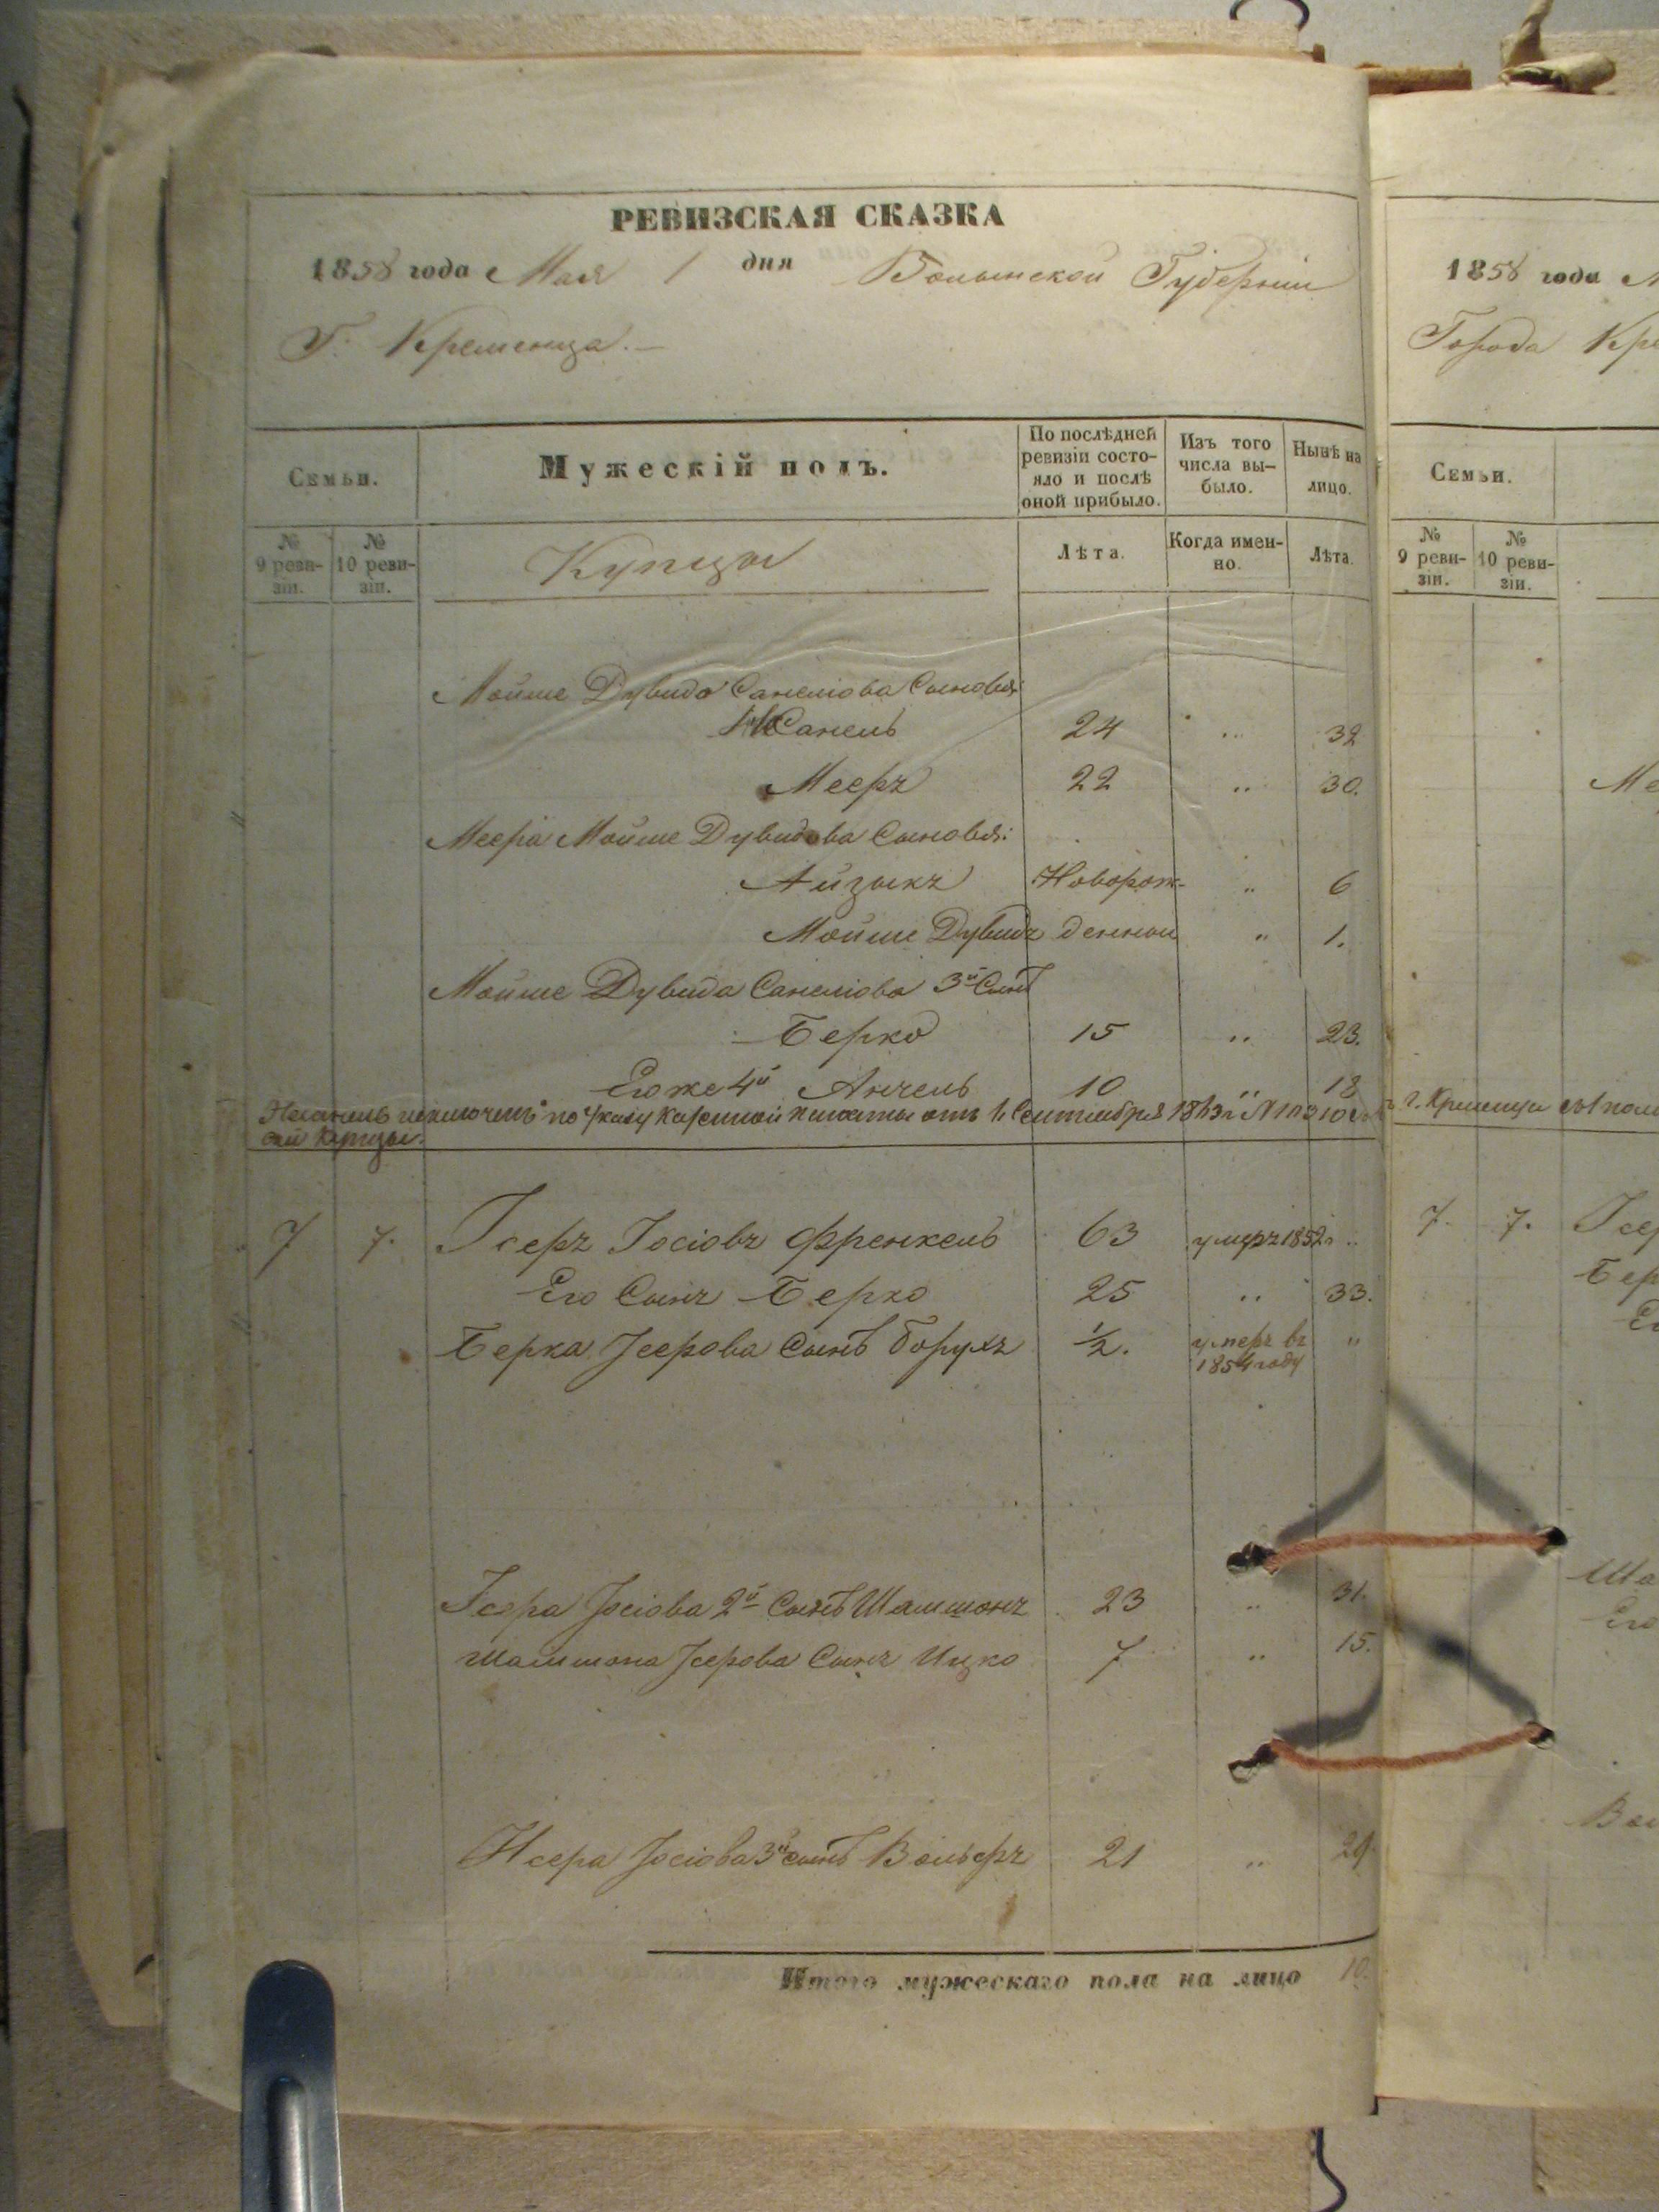 РЕВИЗСКАЯ СКАЗКА
1858 года Мая 1 дня Волынской Губерніи
Г. Кременца.—
Семьи.
Мужескій полъ.
По послѣдней ревизіи состо-
яло и послѣ оной прибыло.
Изъ того числа вы-
было.
Нынѣ на лицо.
№ 9 реви-
зіи.
№ 10 реви-
зіи.
Купцы
Лѣта.
Когда имен-
но.
Лѣта.
Мойше Дувида Санеліова Сыновья:
Санель 24 " 32
Мееръ 22 " 30.
Меера Мойше Дувидова Сыновья:
Айзыкъ Новорож- " 6
Мойше Дувидъ денные " 1.
Мойше Дувида Санеліова 3й Сынъ
Берко 15 " 23.
Его же 4й Анчель 10 " 18
исключенъ по указу Казенной Палаты отъ Сентября
7 7.Ісеръ Іосіовъ Френкель 63 умеръ 1852 г. "
Его Сынъ Берко 25 " 33.
Берка Ісерова Сынъ Борухъ ½. умеръ въ "
1854 году
Ісера Іосіова 2й Сынъ Шамшонъ 23 " 31.
Шамшона Ісерова Сынъ Ицко 7 " 15.
Исера Іосіова 3й сынъ Вольфъ 21 " 29.
Итого мужескаго пола на лицо 10.
1858 года
Города
Семьи.
№ 9 реви-
зіи.
№ 10 реви-
зіи.
г. Кременца
7. 7.